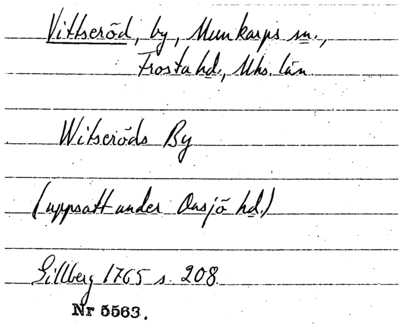 Vittseröd, by, Munkarps sn.,
Frosta hd., Mhs. län
Witseröds By
(uppsatt under Onsjö hd.)
Gillberg 1765 s. 208
Nr 5563.